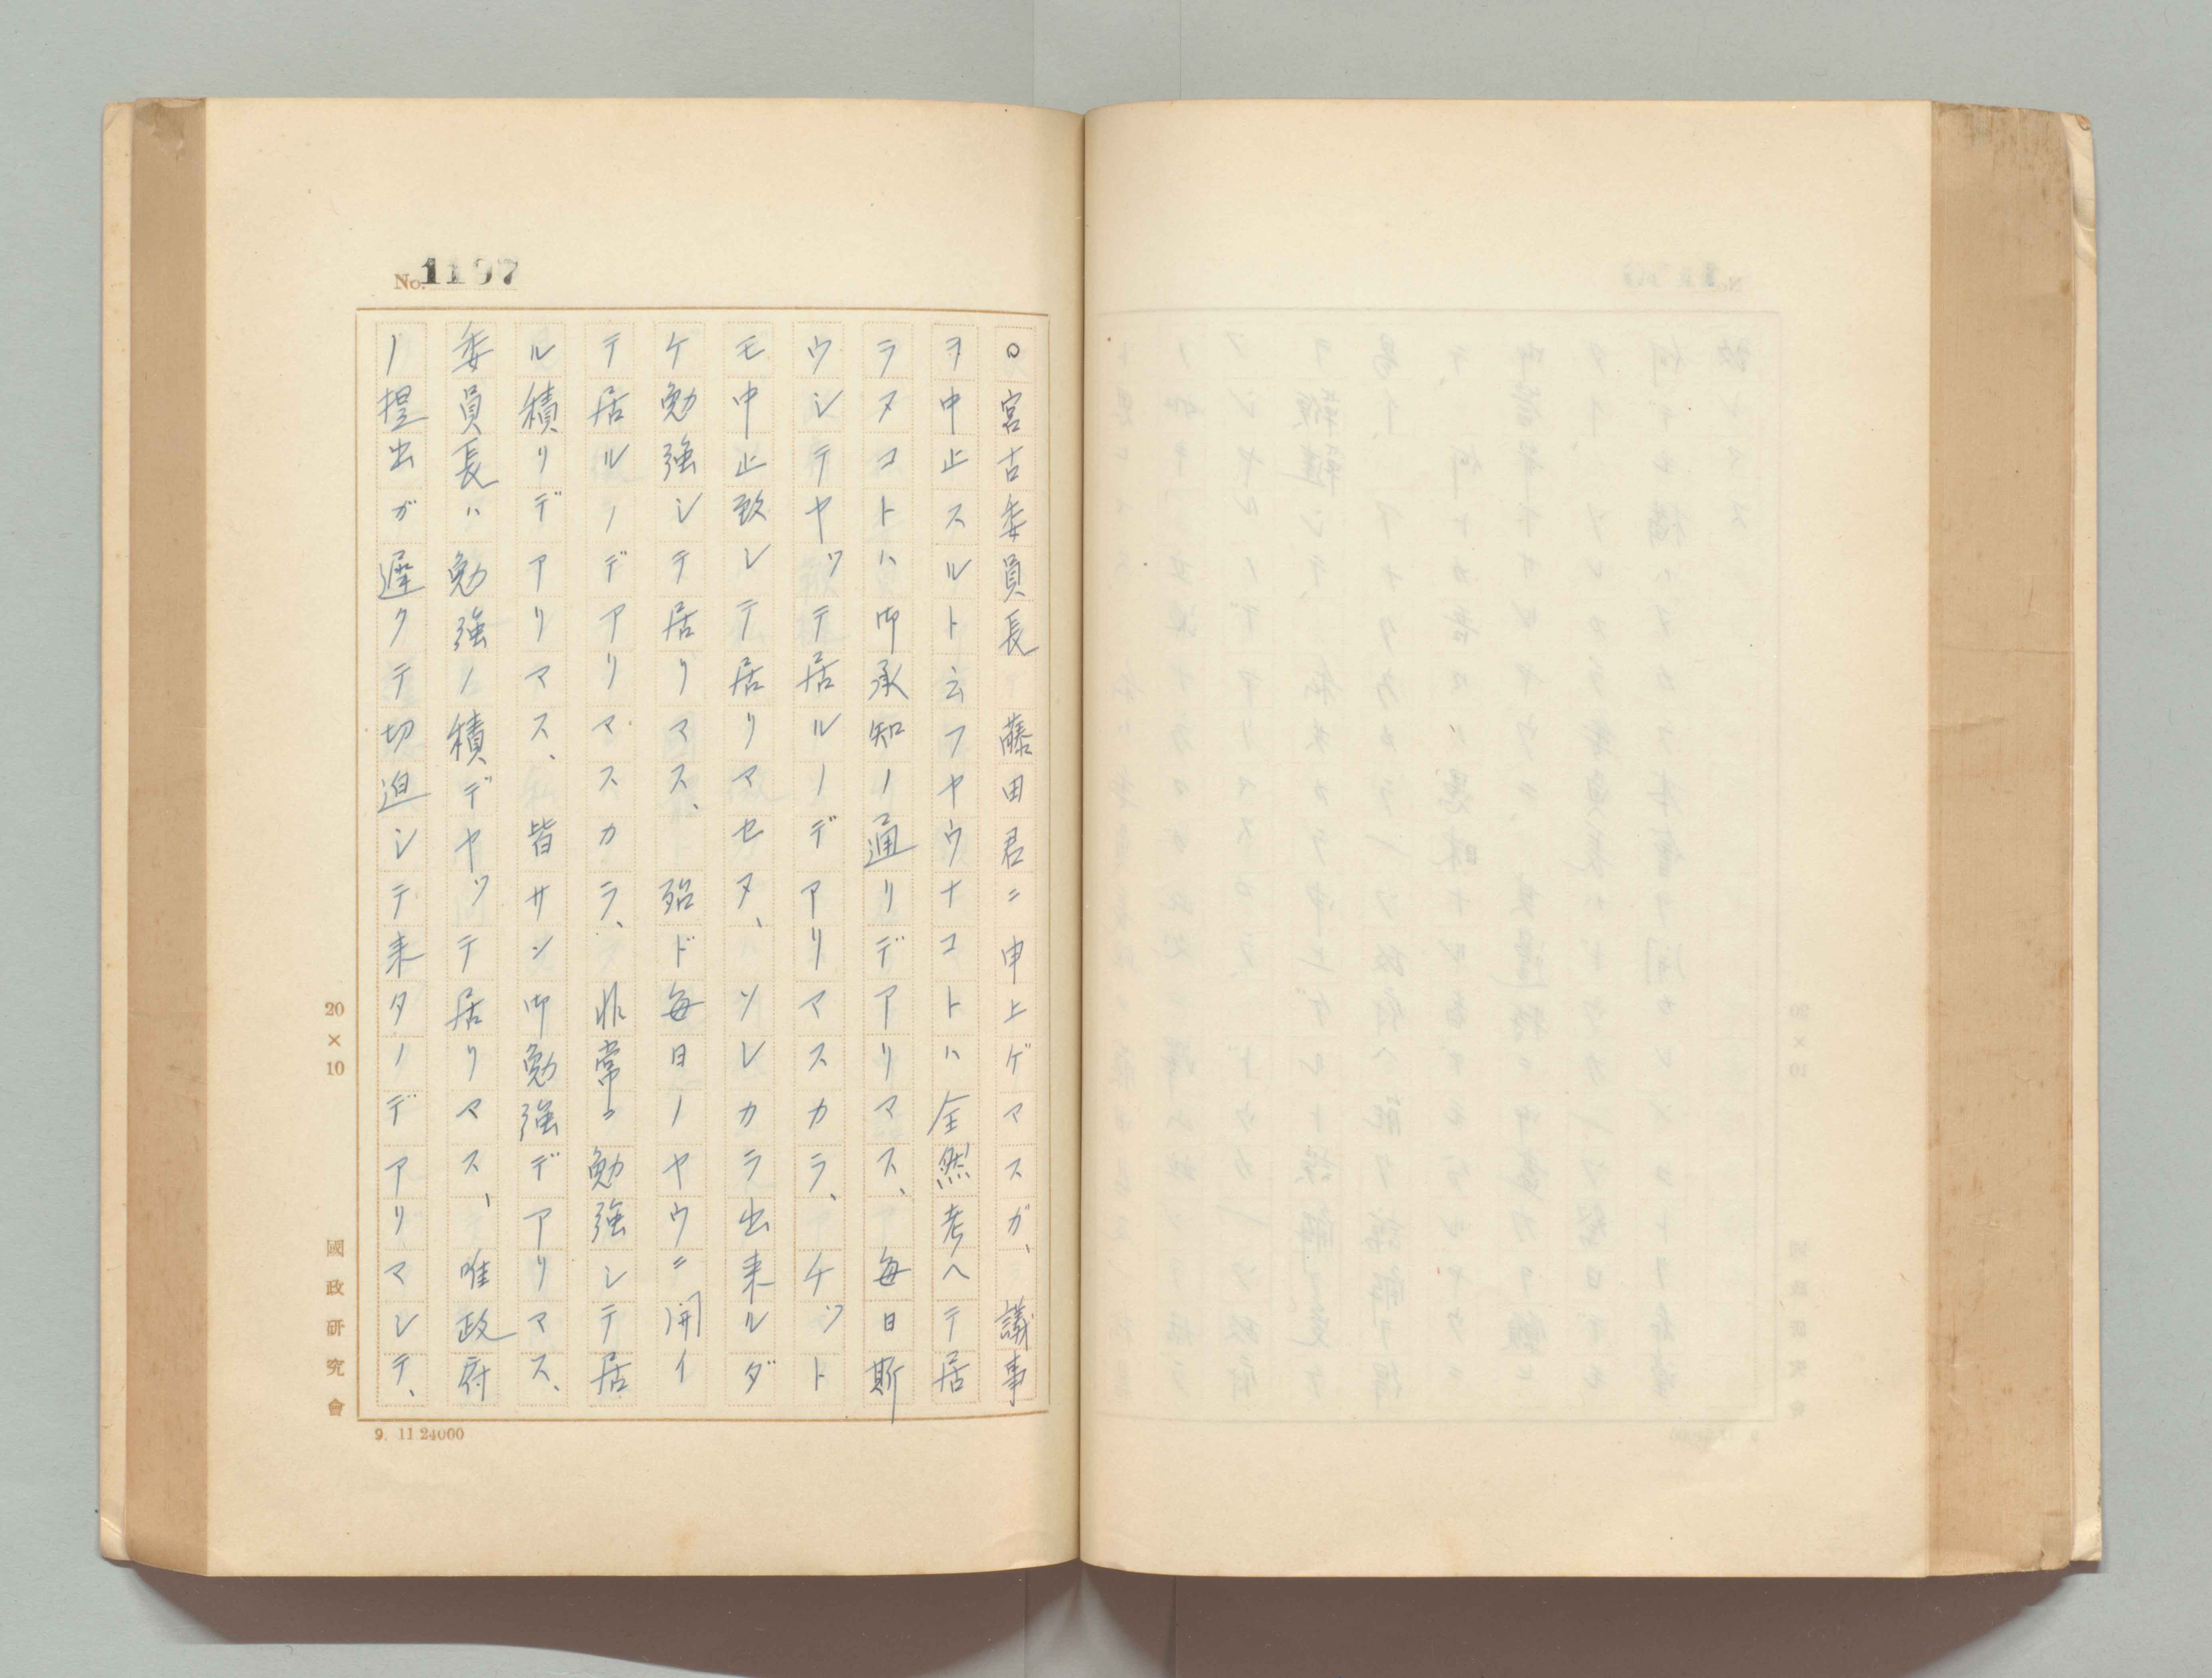 No.1197
○宮古委員長 藤田君ニ申上ゲマスガ、議事
ヲ中止スルト云フヤウナコトハ全然考ヘテ居
ラヌコトハ御承知ノ通リデアリマス、毎日斯
ウシテヤッテ居ルノデアリマスカラ、チット
モ中止致シテ居リマセヌ、ソレカラ出来ルダ
ケ勉強シテ居リマス、殆ド毎日ノヤウニ開イ
テ居ルノデアリマスカラ、非常ニ勉強シテ居
ル積リデアリマス、皆サン御勉強デアリマス、
委員長ハ勉強ノ積デヤッテ居リマス、唯政府
ノ提出ガ遅クテ切迫シテ来タノデアリマシテ、
20×10
國政研究會
9. 11 24000